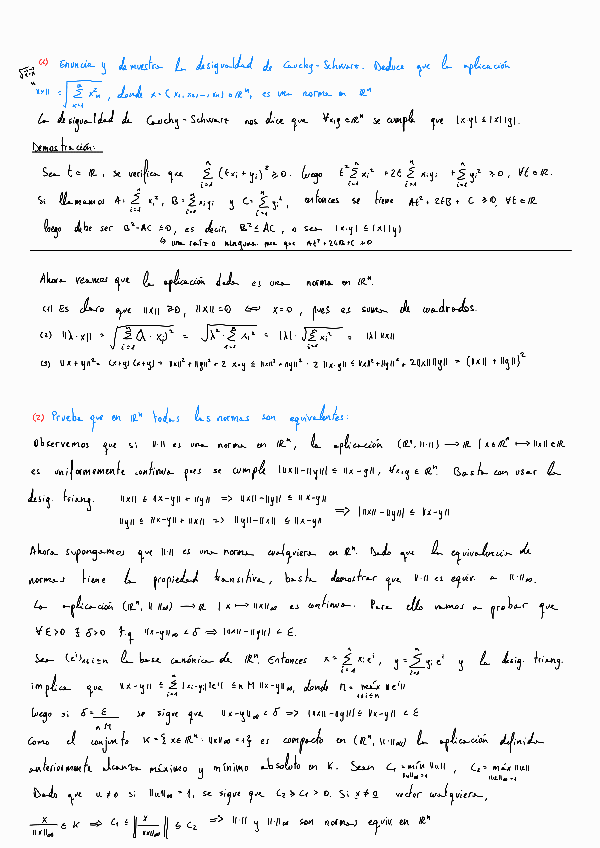 (1) Enuncia y demuestra la desigualdad de Cauchy-Schwarz. Deduce que la aplicación
||x|| = √(∑_{i=1}^n x_i²), donde x = (x₁, x₂, ..., xₙ) ∈ ℝⁿ, es una norma en ℝⁿ
La desigualdad de Cauchy-Schwarz nos dice que ∀x,y ∈ ℝⁿ se cumple que |x·y| ≤ |x||y|.
Demostración:
Sea t ∈ ℝ, se verifica que ∑_{i=1}^n (t x_i + y_i)² ≥ 0. luego t² ∑_{i=1}^n x_i² + 2t ∑_{i=1}^n x_i y_i + ∑_{i=1}^n y_i² ≥ 0, ∀t ∈ ℝ.
Si llamamos A = ∑_{i=1}^n x_i², B = ∑_{i=1}^n x_i y_i y C = ∑_{i=1}^n y_i², entonces se tiene At² + 2tB + C ≥ 0, ∀t ∈ ℝ
luego debe ser B² - AC ≤ 0, es decir, B² ≤ AC, o sea |x·y| ≤ |x||y|
↳ una raíz o ninguna para que At² + 2tB + C ≥ 0
Ahora veamos que la aplicación dada es una norma en ℝⁿ.
(1) Es claro que ||x|| ≥ 0, ||x|| = 0 ⟺ x = 0, pues es suma de cuadrados.
(2) ||λ·x|| = √(∑_{i=1}^n (λ·x_i)²) = √(λ² · ∑_{i=1}^n x_i²) = |λ| · √(∑_{i=1}^n x_i²) = |λ| ||x||
(3) ||x+y||² = (x+y)·(x+y) = ||x||² + ||y||² + 2 x·y ≤ ||x||² + ||y||² + 2 ||x·y|| ≤ ||x||² + ||y||² + 2||x|| ||y|| = (||x|| + ||y||)²
(2) Prueba que en ℝⁿ todas las normas son equivalentes:
Observemos que si ||·|| es una norma en ℝⁿ, la aplicación (ℝⁿ, ||·||) → ℝ / x ∈ ℝⁿ ↦ ||x|| ∈ ℝ
es uniformemente continua pues se cumple | ||x|| - ||y|| | ≤ ||x-y||, ∀x,y ∈ ℝⁿ. Basta con usar la
desig. triang. ||x|| ≤ ||x-y|| + ||y|| ⇒ ||x|| - ||y|| ≤ ||x-y||
||y|| ≤ ||x-y|| + ||x|| ⇒ ||y|| - ||x|| ≤ ||x-y|| ⇒ | ||x|| - ||y|| | ≤ ||x-y||
Ahora supongamos que ||·|| es una norma cualquiera en ℝⁿ. Dado que la equivalencia de
normas tiene la propiedad transitiva, basta demostrar que ||·|| es equiv. a ||·||∞.
La aplicación (ℝⁿ, || ||∞) → ℝ / x ↦ ||x||∞ es continua. Para ello vamos a probar que
∀ε>0 ∃ δ>0 t.q ||x-y||∞ < δ ⇒ | ||x|| - ||y|| | < ε.
Sea (eⁱ)_{1≤i≤n} la base canónica de ℝⁿ. Entonces x = ∑_{i=1}^n x_i eⁱ, y = ∑_{i=1}^n y_i eⁱ y la desig. triang.
implica que ||x-y|| ≤ ∑_{i=1}^n |x_i - y_i| ||eⁱ|| ≤ n M ||x-y||∞, donde M = máx_{1≤i≤n} ||eⁱ||
luego si δ = ε/(nM) se sigue que ||x-y||∞ < δ ⇒ | ||x|| - ||y|| | ≤ ||x-y|| < ε
Como el conjunto K = {x ∈ ℝⁿ : ||x||∞ = 1} es compacto en (ℝⁿ, ||·||∞) la aplicación definida
anteriormente alcanza máximo y mínimo absoluto en K. Sean C₁ = mín_{||u||∞=1} ||u||, C₂ = máx_{||u||∞=1} ||u||
Dado que u ≠ 0 si ||u||∞ = 1, se sigue que C₂ ≥ C₁ > 0. Si x ≠ 0 vector cualquiera,
x/||x||∞ ∈ K ⇒ C₁ ≤ || x/||x||∞ || ≤ C₂ ⇒ ||·|| y ||·||∞ son normas equiv. en ℝⁿ